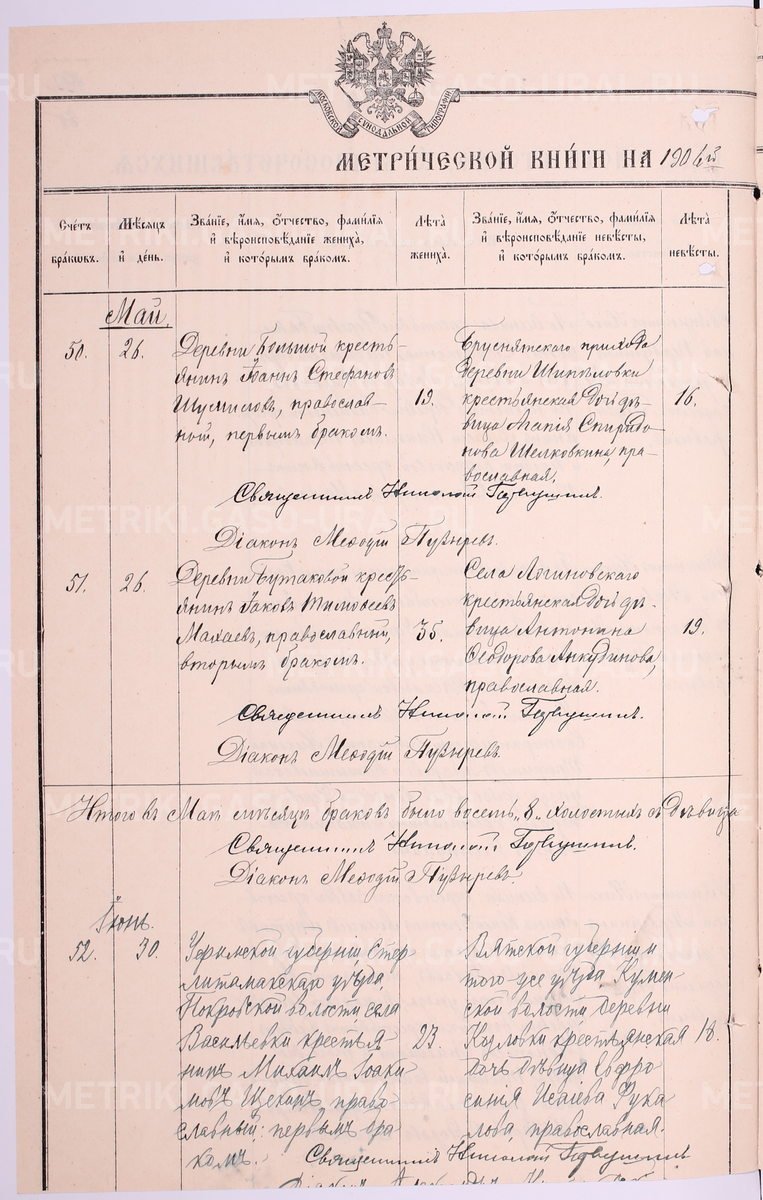 МОСКОВСКОЙ СѴНОДАЛЬНОЙ ТИПОГРАФІИ
МЕТРИ́ЧЕСКОЙ КНИ́ГИ НА 1906й
Сче́тъ бра́кѡвъ.
Мѣ́сяцъ и҆ де́нь.
Зва́нїе, и҆́мя, ѻ҆́тчество, фами́лїя
и҆ вѣроисповѣ́данїе жениха̀,
и҆ кото́рымъ бра́комъ.
Лѣ́та жениха̀.
Зва́нїе, и҆́мя, ѻ҆́тчество, фами́лїя
и҆ вѣроисповѣ́данїе невѣ́сты,
и҆ кото́рымъ бра́комъ.
Лѣ́та невѣ́сты.
Май.
50.
26.
Деревни Большой кресть-
янинъ Іоаннъ Стефановъ
Шумиловъ, православ-
ной, первымъ бракомъ.
19.
Бруснятскаго прихода
деревни Шипѣловки
крестьянская дочь дѣ-
вица Марія Спиридо-
нова Шелковкина, пра-
вославная.
16.
Священникъ Николай
Діаконъ Меѳодій Пузыревъ.
51.
26.
Деревни Бутаковой кресть-
янинъ Іаковъ Тимоѳеевъ
Махаевъ, православный,
вторымъ бракомъ.
35.
Села Логиновскаго
крестьянская дочь дѣ-
вица Антонина
Ѳеодорова Анкудинова,
православная.
19.
Священникъ Николай
Діаконъ Меѳодій Пузыревъ.
Итого въ Маѣ мѣсяцѣ браковъ было восемь, 8 холостыхъ съ дѣвица
Священникъ Николай
Діаконъ Меѳодій Пузыревъ.
Іюнь.
52.
30.
Уфимской губерніи, Стер
литамакскаго уѣзда,
Покровской волости, села
Васильевки крестья-
нинъ Михаилъ Іоаки
мовъ Щекинъ право-
славный: первымъ бра
комъ.
23.
Вятской губерніи и
того-же уѣзда, Кумен-
ской волости деревни
Козловки крестьянская
дочь дѣвица Евфро-
синія Исаіева Фука
лова, православная.
18.
Священникъ Николай
Діаконъ